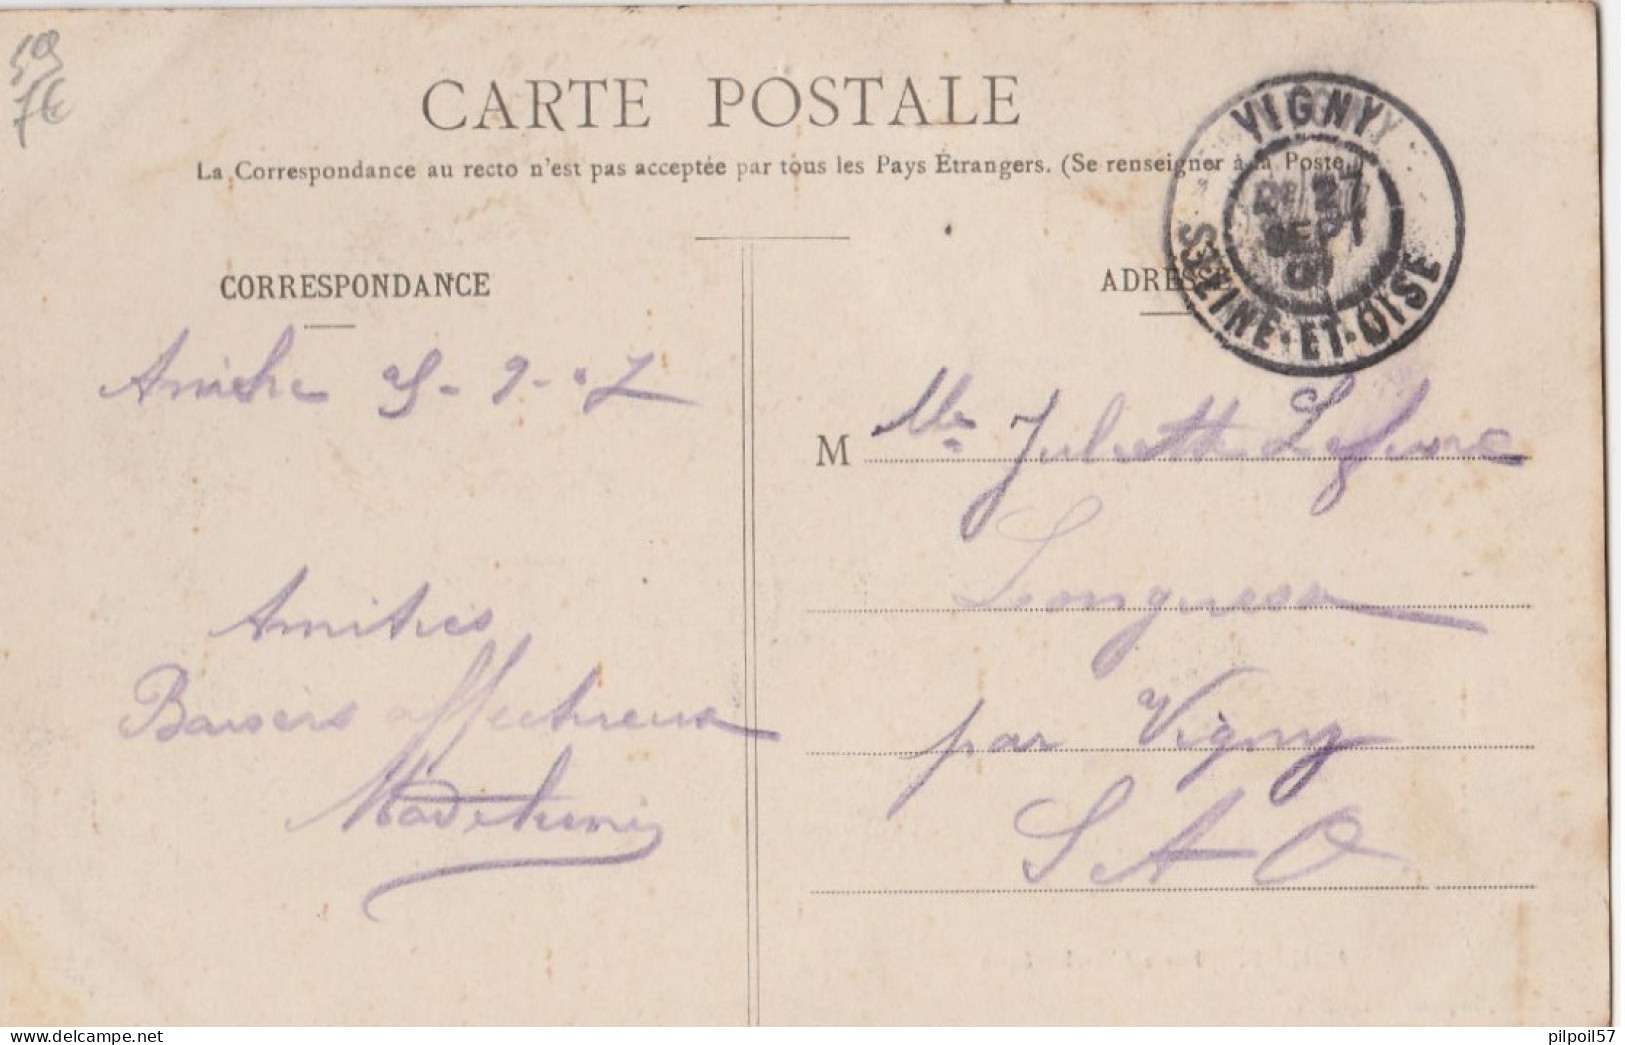 50s
7€
CARTE POSTALE
La Correspondance au recto n'est pas acceptée par tous les Pays Étrangers. (Se renseigner à la Poste.)
VIGNY
27
SEPT
07
SEINE-ET-OISE
CORRESPONDANCE
ADRESSE
Aniche 25-9-07
M Mlle Juliette Lefevre
Longuesse
par Vigny
S et O
Amitiés
Baisers affectueux
Visit Delcampe.net
pilpoil57